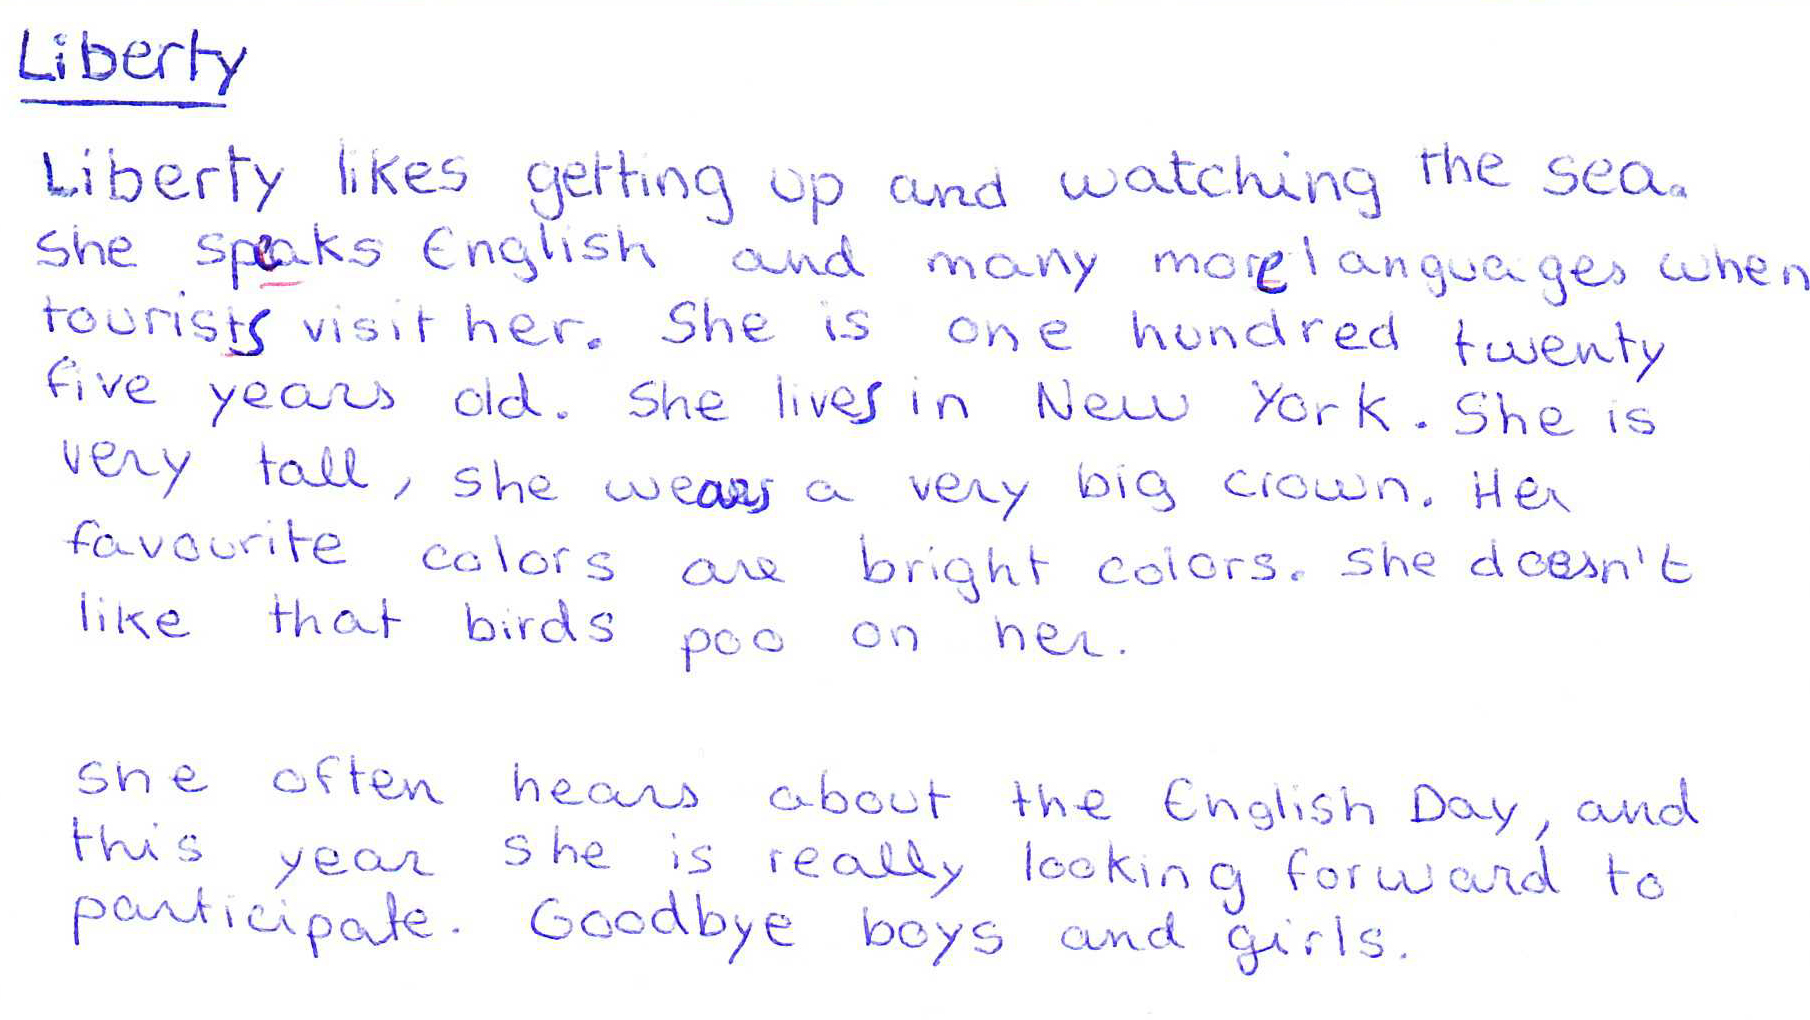 Liberty
Liberty likes getting up and watching the sea.
She speaks English and many more languages when
tourists visit her. She is one hundred twenty
five years old. She lives in New York. She is
very tall, she wears a very big crown. Her
favourite colors are bright colors. She doesn't
like that birds poo on her.
She often hears about the English Day, and
this year she is really looking forward to
participate. Goodbye boys and girls.